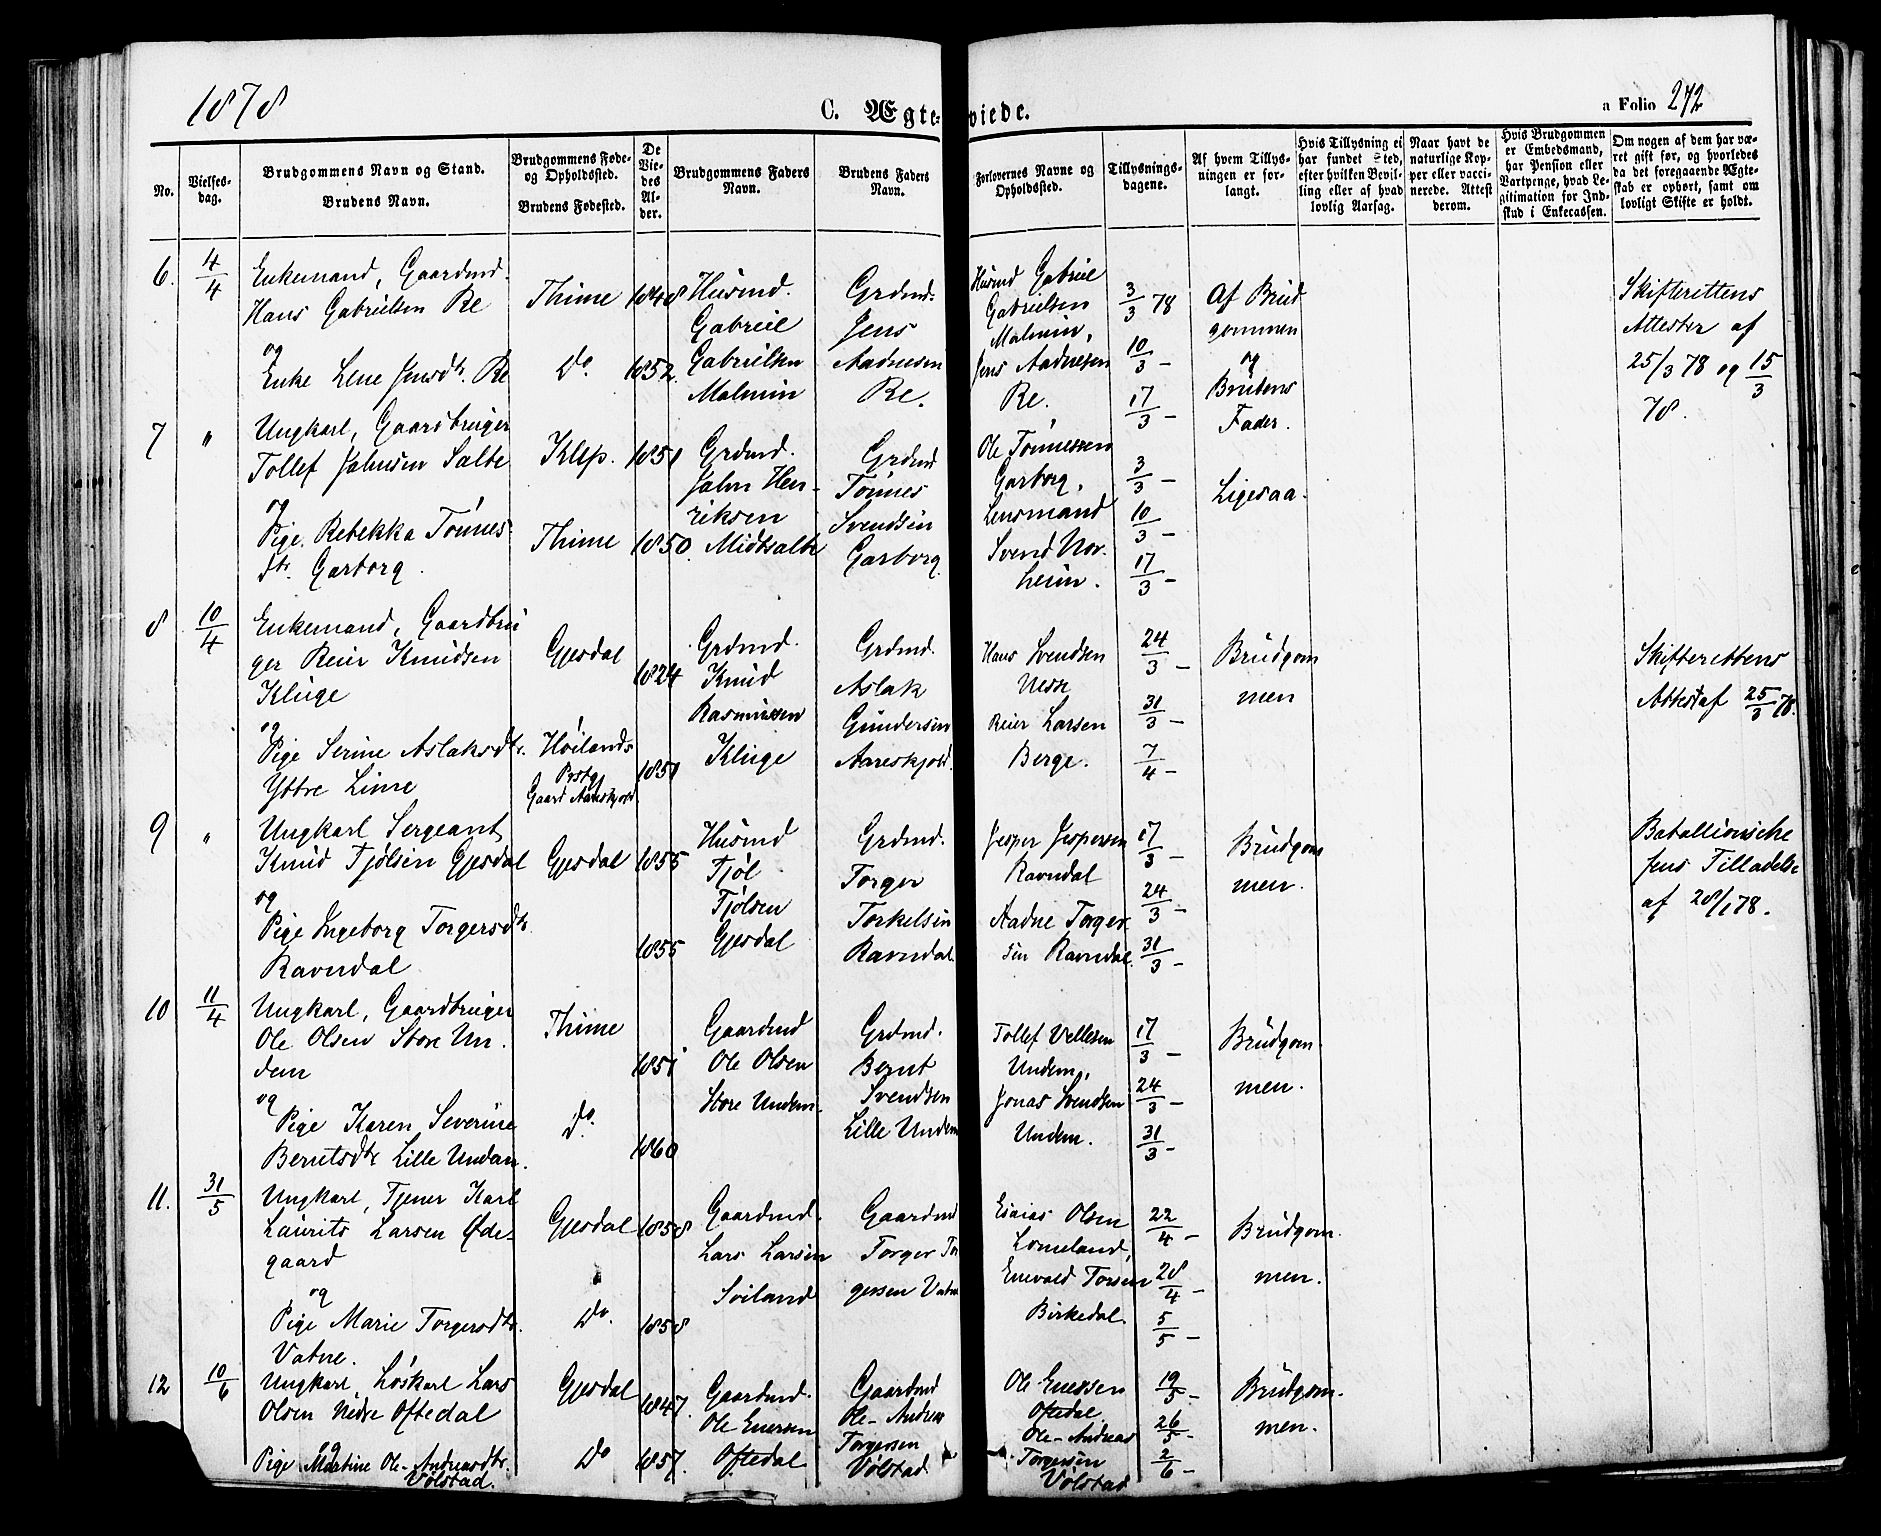 1878
C. Ægteviede.
a Folio 272
No.
Vielsesdag.
Brudgommens Navn og Stand.
Brudens Navn.
Brudgommens Føde-
og Opholdssted.
Brudens Fødested.
De
Vie-
des
Al-
der.
Brudgommens Faders
Navn.
Brudens Faders
Navn.
Forlovernes Navne og
Opholdssted.
Tillysnings-
dagene.
Af hvem Tillys-
ningen er for-
langt.
Hvis Tillysning ei
har fundet Sted,
efter hvilken Bevil-
ling eller af hvad
lovlig Aarsag.
Naar havt de
naturlige Kop-
per eller vacci-
nerede. Attest
derom.
Hvis Brudgommen
er Embedsmand,
har Pension eller
Vartpenge, hvad Le-
gitimation for Ind-
skud i Enkecassen.
Om nogen af dem har væ-
ret gift før, og hvorledes
da det foregaaende Ægte-
skab er ophørt, samt om
lovligt Skifte er holdt.
6. 4/4
Enkemand, Gaardmd.
Hans Gabrielsen Re
og
Enke Lene Jensdtr. Re
Thime
Do.
1848
1852.
Husmd.
Gabriel
Gabrielsen
Malmin
Grdmd.
Jens
Aadnesen
Re.
Husmd Gabriel
Gabrielsen
Malmin,
Jens Aadnesen
Re.
3/3 78
10/3 –
17/3 –
Af Brud
gommen
og
Brudens
Fader.
Skifterettens
Attester af
25/3 78 og 15/3
78.
7 "
Ungkarl, Gaardbruger
Tollef Johnsen Salte
og
Pige. Rebekka Tønnes-
dtr. Garborg.
Klep.
Thime
1851
1850.
Grdmd.
John Hen-
riksen
Midtsalte
Grdmd
Tønnes
Svendsen
Garborg
Ole Tønnessen
Garborg,
Lensmand
Svend Nor-
heim.
3/3 –
10/3 –
17/3 –
Ligesaa.
8 10/4
Enkemand, Gaardbru
ger Reier Knudsen
Kluge
og
Pige Serine Aslaksdtr.
Yttre Lime
Gjesdal
Høilands
Prstgj
Gaard Aareskjold
1824
1851
Grdmd.
Knud
Rasmussen
Kluge
Grdmd.
Aslak
Gundersen
Aareskjold.
Hans Svendsen
Nesse
Reier Larsen
Berge.
24/3 –
31/3 –
7/4 –
Brudgom
men
Skifterettens
Attest af 25/3 78.
9 "
Ungkarl Sergeant,
Knud Tjølsen Gjesdal
og
Pige Ingeborg Torgersdtr
Ravndal
Gjesdal
1855
1855
Husmd
Tjøl
Tjølsen
Gjesdal
Grdmd.
Torger
Torkelsen
Ravndal.
Jesper Jespersen
Ravndal
Aadne Torger-
sen Ravndal.
17/3 –
24/3 –
31/3 –
Brudgom
men.
Batallionsche
fens Tilladelse
af 28/1 78.
10 11/4
Ungkarl, Gaardbruger
Ole Olsen Store Un-
dem
og
Pige Karen Severine
Berntsdtr Lille Undem.
Thime
Do.
1851
1860
Gaardmd
Ole Olsen
Store Undem.
Grdmd.
Bernt
Svendsen
Lille Undem
Tollef Vellesen
Undem,
Jonas Svendsen
Undem.
17/3 –
24/3 –
31/3 –
Brudgom-
men.
11. 31/5
Ungkarl, Tjener Karl
Laurits Larsen Øde-
gaard
og
Pige Marie Torgersdtr.
Vatne.
Gjesdal
Do.
1858
1858
Gaardmd.
Lars Larsen
Søiland
Gaardmd
Torger Tor
gersen Vatne
Esaias Olsen
Lomeland,
Enevald Torsen
Birkedal.
22/4 –
28/4 –
5/5 –
Brudgom-
men.
12 10/6
Ungkarl, Løskarl Lars
Olsen Nedre Oftedal
og
Pige Martine Ole-Andreasdtr.
Vølstad.
Gjesdal
Do
1847.
1857.
Gaardmd.
Ole Enersen
Oftedal
Gaardmd
Ole-Andreas
Torgersen
Vølstad
Ole Enessen
Oftedal
Ole-Andreas
Torgersen
Vølstad
19/5 –
26/5 –
2/6 –
Brudgom-
men.